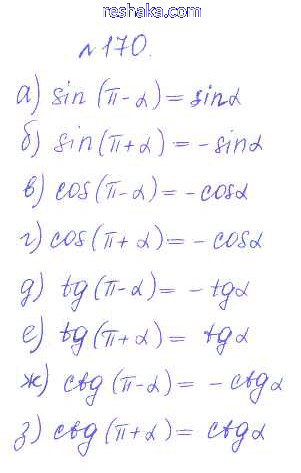 reshaka.com
№170.
а) sin (π-α) = sinα
б) sin(π+α) = -sinα
в) cos(π-α) = -cosα
г) cos(π+α) = -cosα
д) tg(π-α) = -tgα
е) tg(π+α) = tgα
ж) ctg(π-α) = -ctgα
з) ctg(π+α) = ctgα